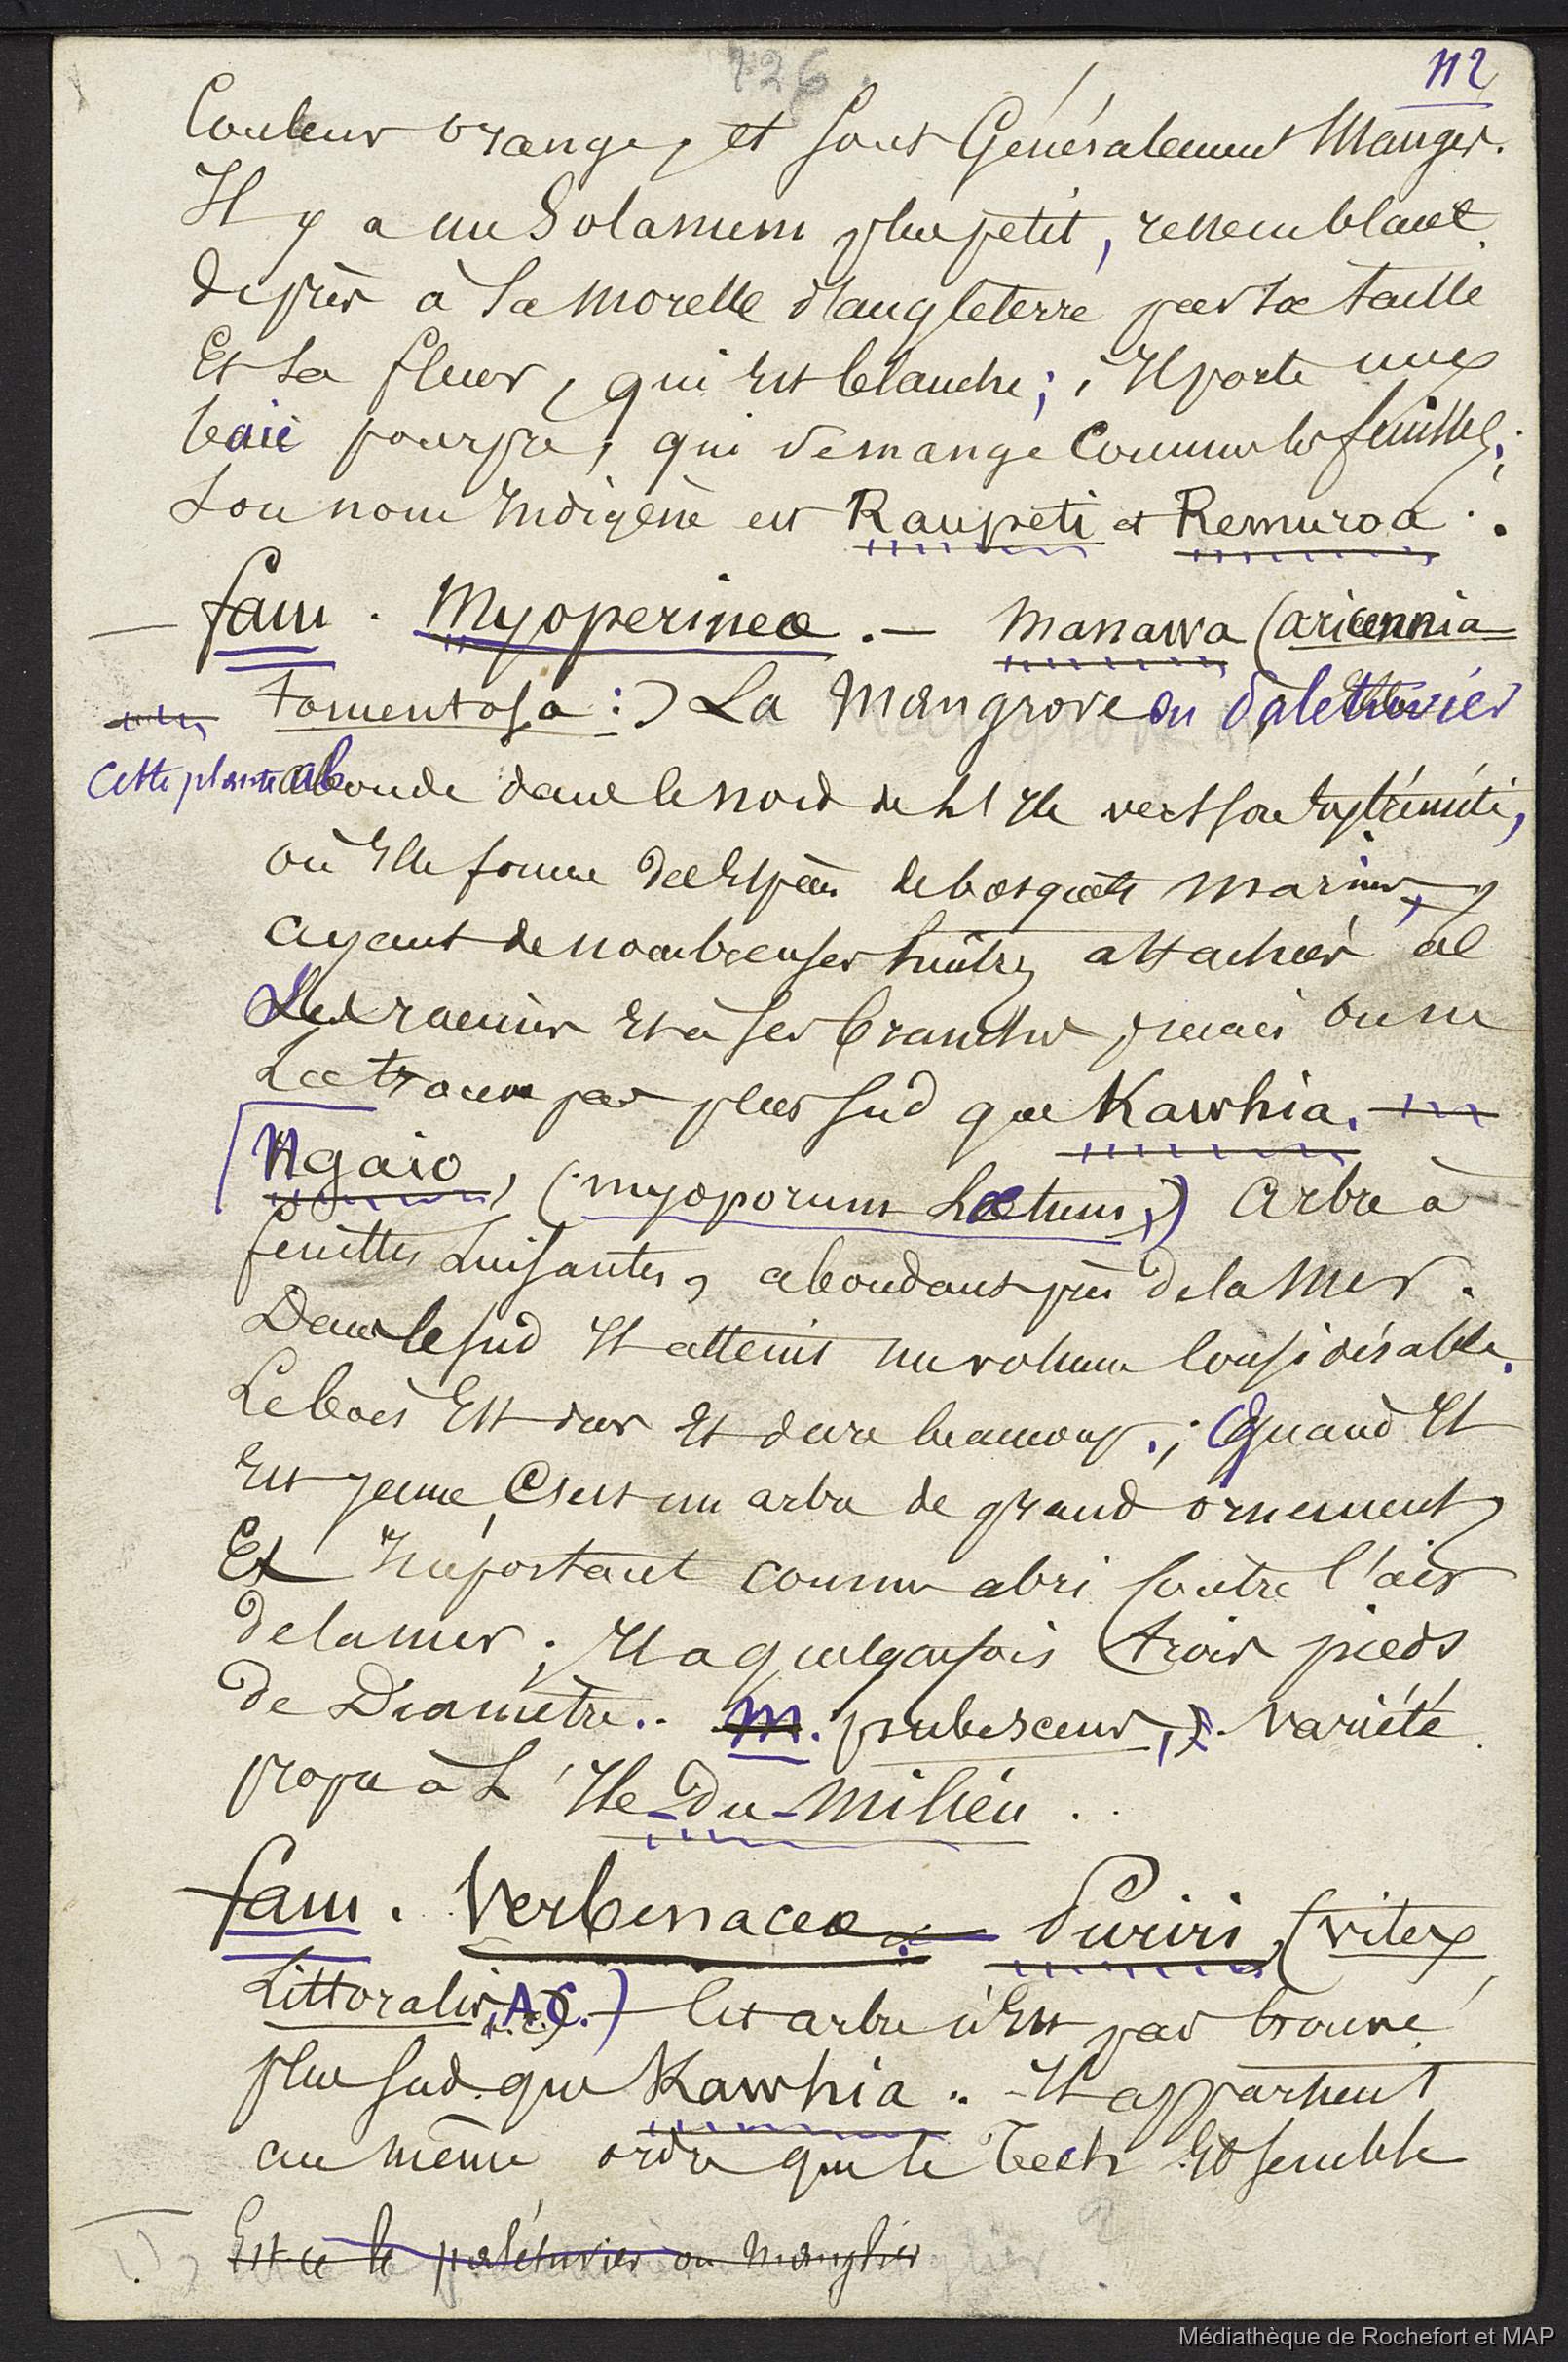 226
112
Couleur orange, et sont Généralement Manger.
Il y a un Solanum plus petit, ressemblant
de près à la Morelle d'angleterre par sa taille
Et sa fleur, qui Est blanche; Il porte une
baie pourpre, qui se mange Comme les feuilles;
Son nom Indigène est Raupeti et Remuroa.
— fam. Myoperineæ. — Manawa (avicennia
tomentosa:) La Mangrove ou Palétuvier
Cette plante abonde dans le nord de L'Ile vers son Extrémité,
où Elle forme des Espèces de bosquets marins,
ayant de nombreuses huîtres attachées à
Ses racines Et à ses branches, mais on ne
La trouve pas plus sud que Kawhia. —
Ngaio, (myoporum Lœtum,) Arbre à
feuilles Luisantes, abondant près de la Mer.
Dans le sud Il atteint un volume Considérable.
Le bois Est dur Et dure beaucoup.; Quand Il
Est jeune, C'est un arbre de grand ornement,
Et Important comme abri Contre l'air
de la mer; Il a quelquefois trois pieds
de Diamètre.. M. pubescens,). Variété
propre à L'Ile-du-Milieu..
fam. Verbenaceæ. — Puriri, (vitex
Littoralis, A.C.) — Cet arbre n'Est pas trouvé
plus sud que Kawhia.. — Il appartient
au même ordre que le Teck Et semble
Est-ce le palétuvier ou manglier
Médiathèque de Rochefort et MAP